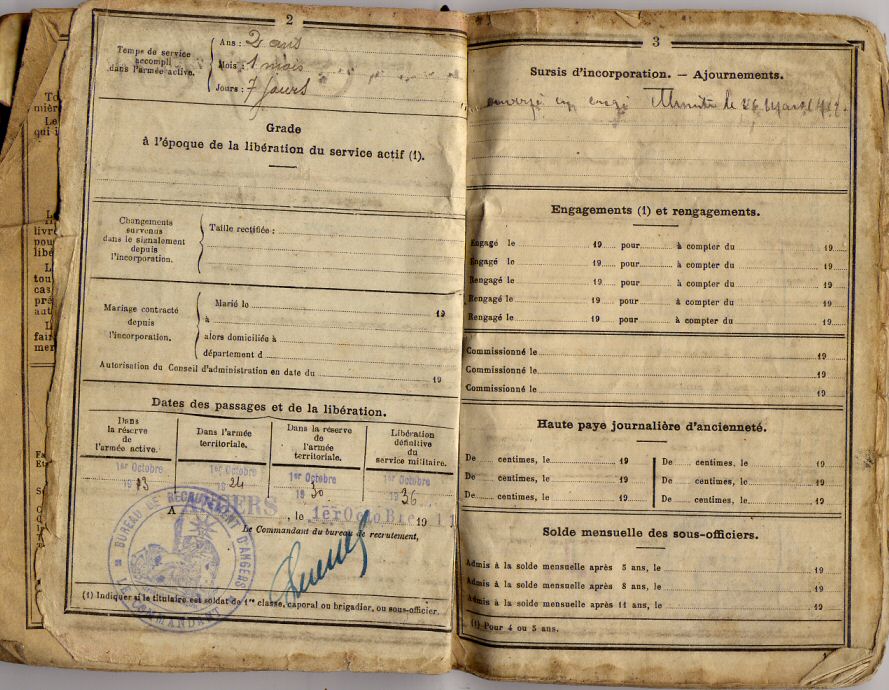 2
Temps de service
accompli
dans l'armée active.
Ans : 2 ans
Mois : 1 mois
Jours : 7 jours
Grade
à l'époque de la libération du service actif (1).
Changements
survenus
dans le signalement
depuis
l'incorporation.
Taille rectifiée :
Mariage contracté
depuis
l'incorporation.
Marié le 19
à
alors domiciliée à
département d
Autorisation du Conseil d'administration en date du 19
Dates des passages et de la libération.
Dans
la réserve
de
l'armée active.
Dans l'armée
territoriale.
Dans la réserve
de
l'armée
territoriale.
Libération
définitive
du
service militaire.
1er Octobre
1913
1er Octobre
1924
1er Octobre
1930
1er Octobre
1936
A ANGERS, le 1er Octobre 1911
Le Commandant du bureau de recrutement,
BUREAU DE RECRUTEMENT D'ANGERS
LE COMMANDANT
(1) Indiquer si le titulaire est soldat de 1re classe, caporal ou brigadier, ou sous-officier.
3
Sursis d'incorporation. — Ajournements.
le 26
Engagements (1) et rengagements.
Engagé le 19 pour à compter du 19
Engagé le 19 pour à compter du 19
Rengagé le 19 pour à compter du 19
Rengagé le 19 pour à compter du 19
Rengagé le 19 pour à compter du 19
Commissionné le 19
Commissionné le 19
Commissionné le 19
Haute paye journalière d'ancienneté.
De centimes, le 19
De centimes, le 19
De centimes, le 19
De centimes, le 19
De centimes, le 19
De centimes, le 19
Solde mensuelle des sous-officiers.
Admis à la solde mensuelle après 5 ans, le 19
Admis à la solde mensuelle après 8 ans, le 19
Admis à la solde mensuelle après 11 ans, le 19
(1) Pour 4 ou 5 ans.